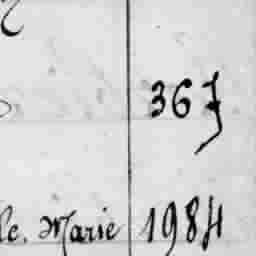 367
le. Marie 1984